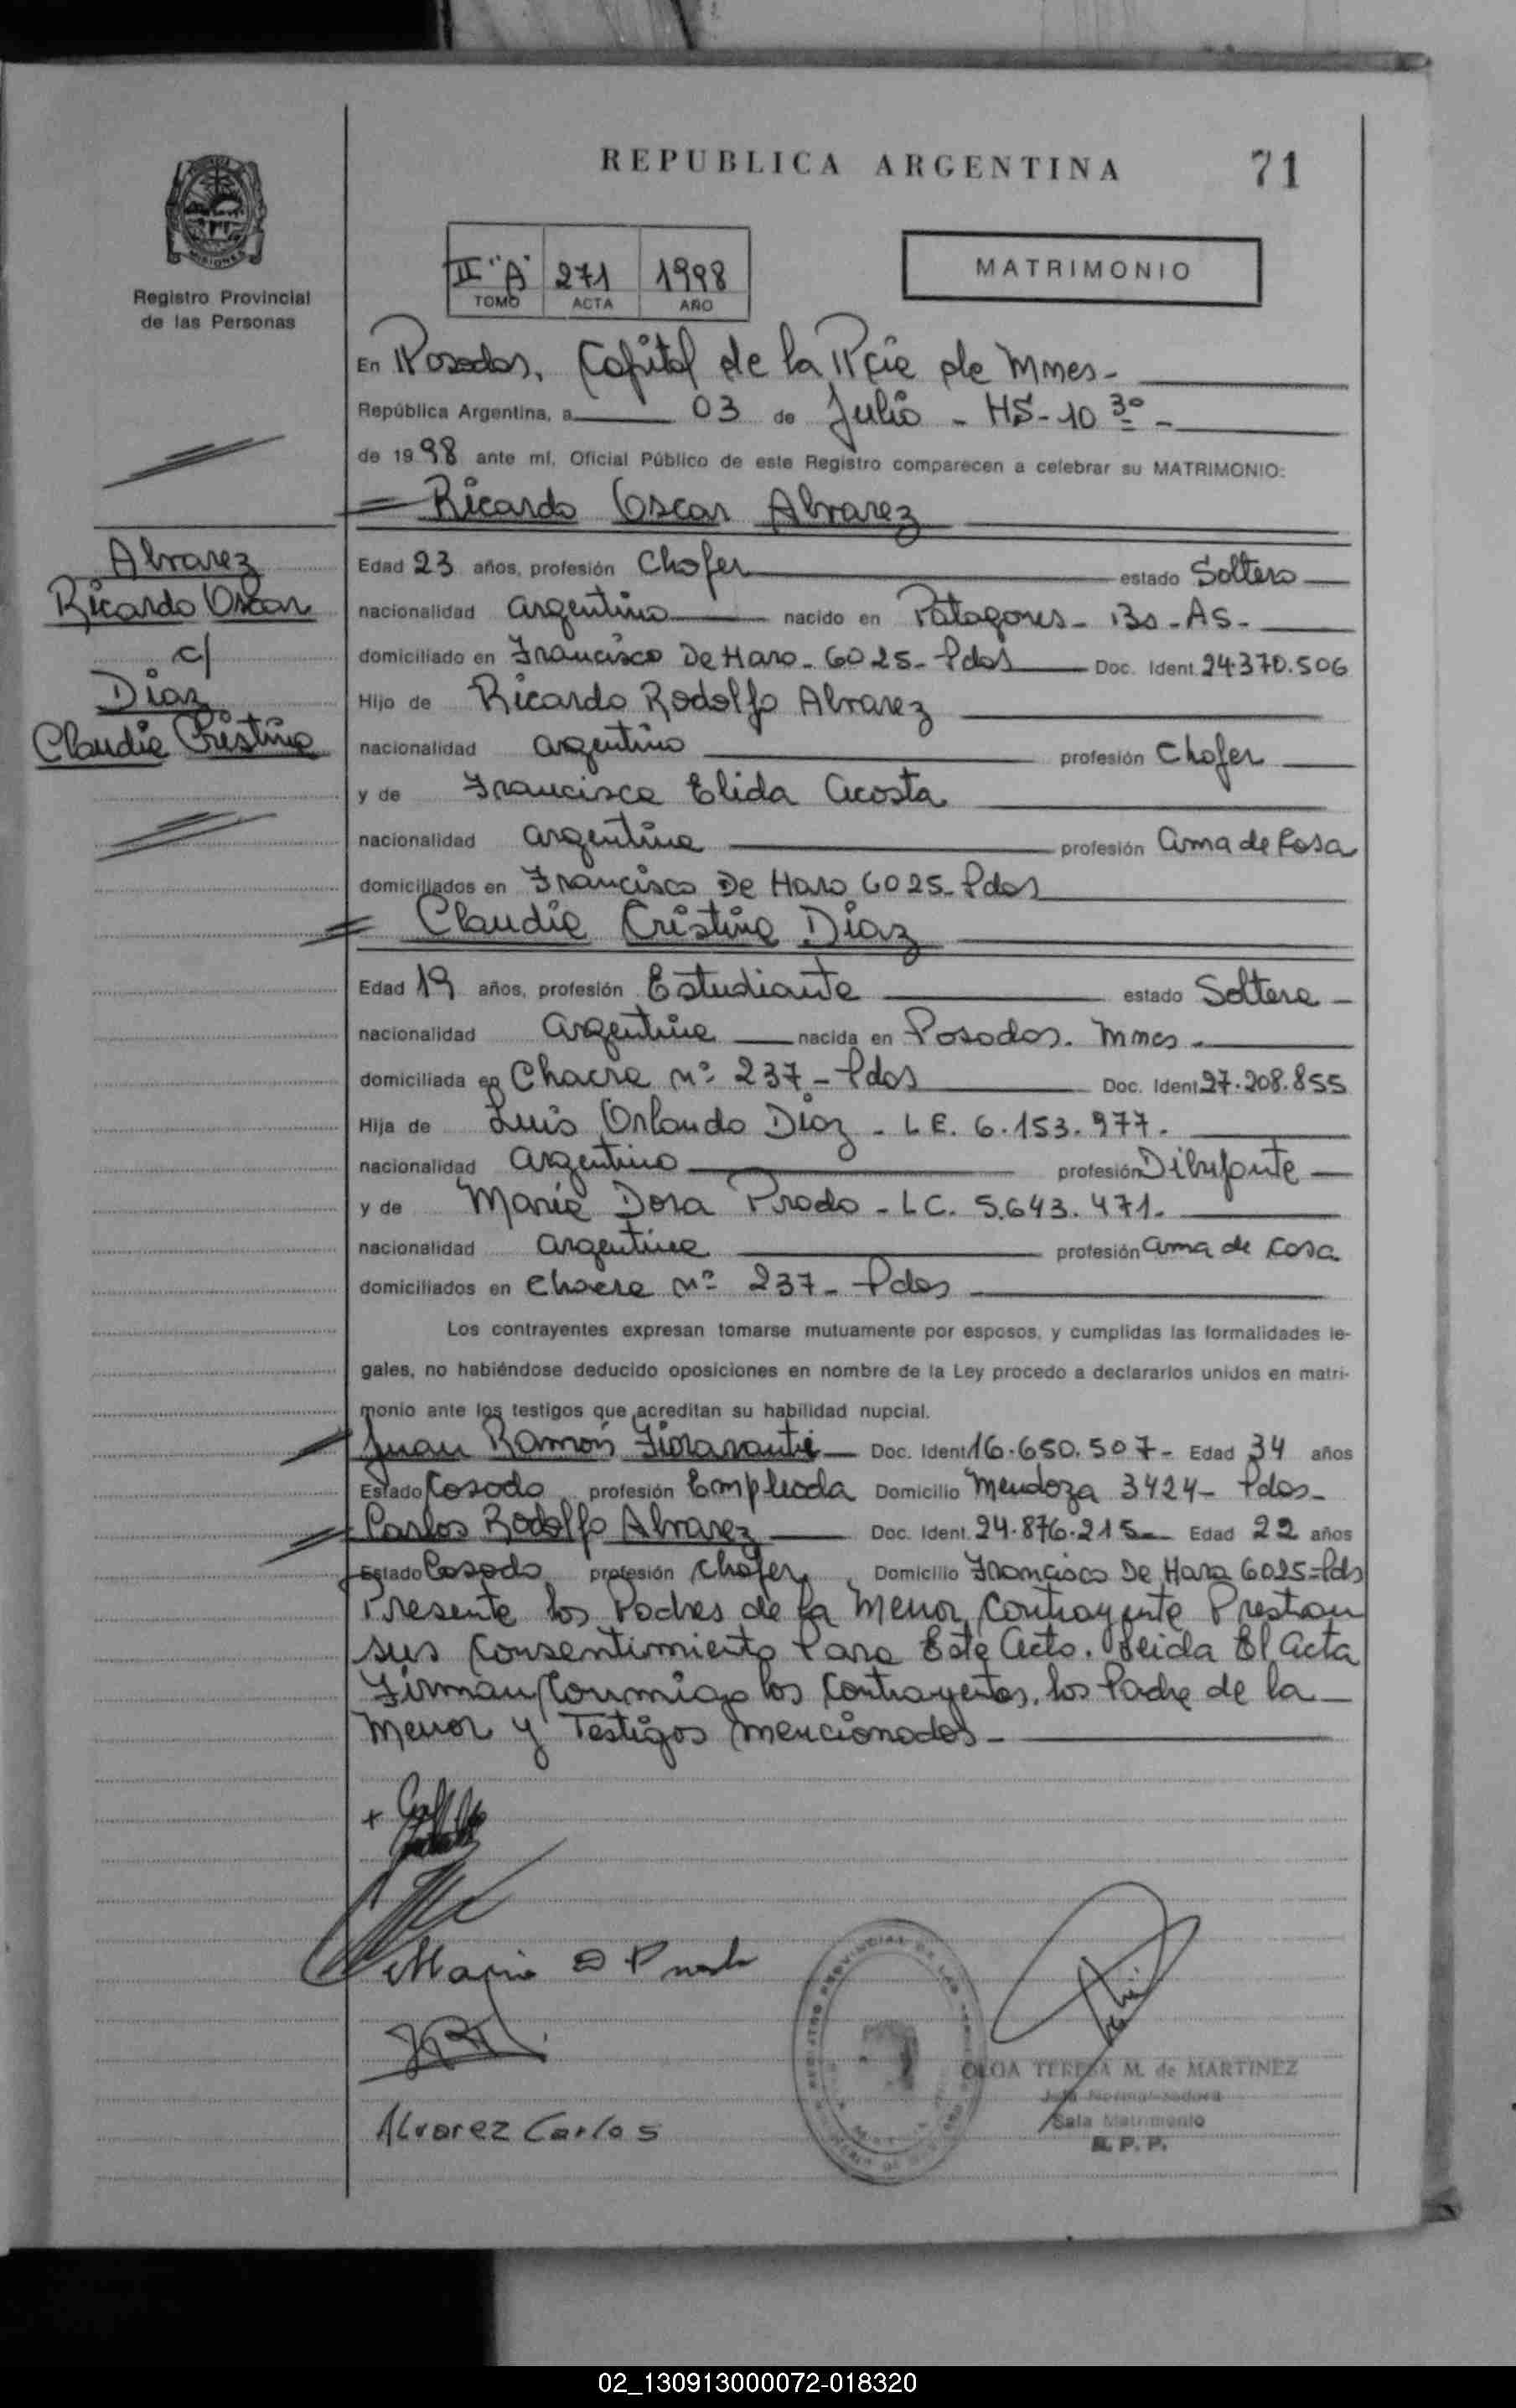 REPUBLICA ARGENTINA
71
MISIONES
Registro Provincial
de las Personas
II "A" 271 1998
TOMO ACTA AÑO
MATRIMONIO
En Posadas, Capital de la Pcia de Mnes-
República Argentina, a 03 de Julio - HS-10 30 -
de 1998 ante mí, Oficial Público de este Registro comparecen a celebrar su MATRIMONIO:
Ricardo Oscar Alvarez
Alvarez
Ricardo Oscar
c/
Diaz
Claudia Cristina
Edad 23 años, profesión Chofer estado Soltero
nacionalidad argentino nacido en Patagones - Bs - As -
domiciliado en Francisco De Haro - 6025 - Pdas Doc. Ident. 24.370.506
Hijo de Ricardo Rodolfo Alvarez
nacionalidad argentino profesión Chofer
y de Francisca Elida Acosta
nacionalidad argentina profesión ama de Casa
domiciliados en Francisco De Haro 6025 - Pdas
Claudia Cristina Diaz
Edad 19 años, profesión Estudiante estado Soltera -
nacionalidad argentina nacida en Posadas. Mnes -
domiciliada en Chacra nº 237 - Pdas Doc. Ident 27.208.855
Hija de Luis Orlando Diaz - L E. 6.153.977.
nacionalidad argentino profesión Dibujante
y de Maria Dora Prado - L C. 5.643.471.
nacionalidad argentina profesión ama de casa
domiciliados en Chacra nº 237 - Pdas
Los contrayentes expresan tomarse mutuamente por esposos, y cumplidas las formalidades le-
gales, no habiéndose deducido oposiciones en nombre de la Ley procedo a declararlos unidos en matri-
monio ante los testigos que acreditan su habilidad nupcial.
Juan Ramón Fioravanti Doc. Ident 16.650.507 - Edad 34 años
Estado Casado profesión Empleada Domicilio Mendoza 3424 - Pdas -
Carlos Rodolfo Alvarez Doc. Ident. 24.876.215 Edad 22 años
Estado Casado profesión chofer Domicilio Francisco De Haro 6025 = Pds
Presente los Padres de la Menor Contrayente Prestan
sus Consentimiento Para Este Acto. Leida El acta
Firman Conmigo los Contrayentes, los Padre de la
Menor y Testigos mencionados -
Maria D Prado
Alvarez Carlos
OLGA TERESA M. de MARTINEZ
Jefa Normalizadora
Sala Matrimonio
R. P. P.
02_130913000072-018320